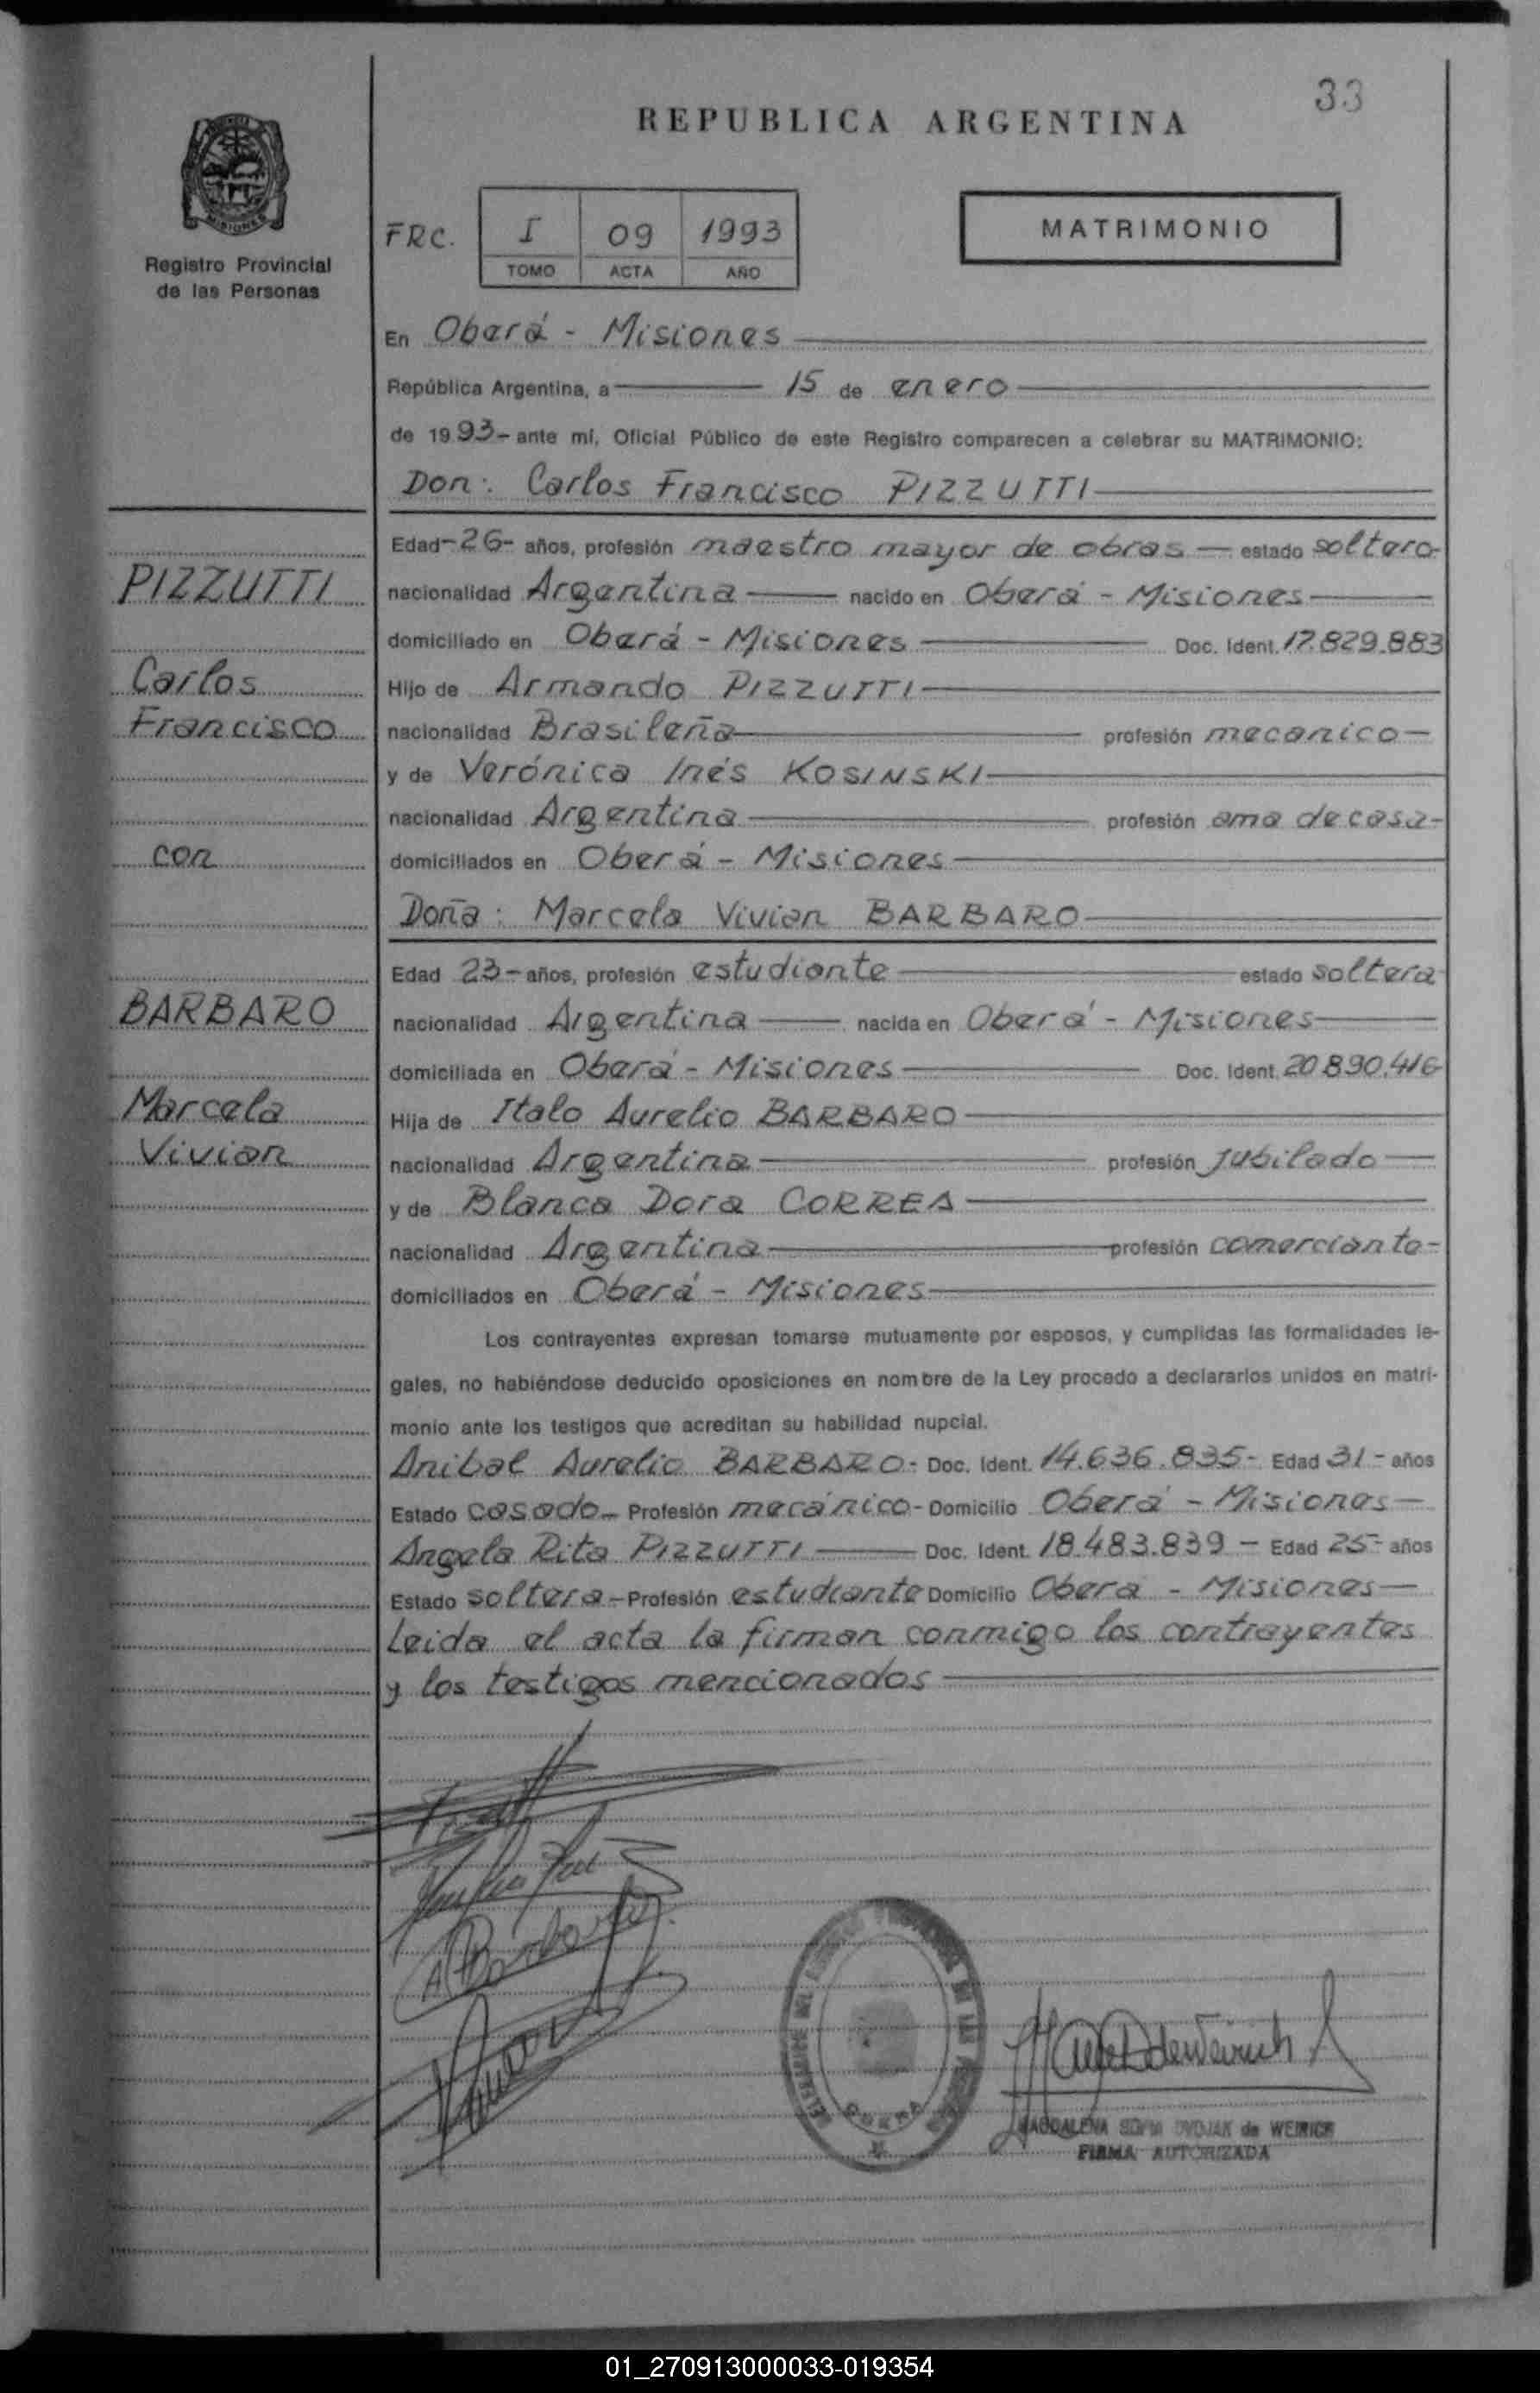 33
REPUBLICA ARGENTINA
MISIONES
Registro Provincial
de las Personas
FRC.
I 09 1993
TOMO ACTA AÑO
MATRIMONIO
En Oberá - Misiones
República Argentina, a 15 de enero
de 1993- ante mí, Oficial Público de este Registro comparecen a celebrar su MATRIMONIO:
Don: Carlos Francisco PIZZUTTI
Edad -26- años, profesión maestro mayor de obras - estado soltero-
PIZZUTTI
nacionalidad Argentina nacido en Oberá - Misiones
domiciliado en Oberá - Misiones Doc. Ident. 17.829.883
Carlos
Hijo de Armando PIZZUTTI
Francisco
nacionalidad Brasileña profesión mecanico
y de Verónica Inés KOSINSKI
nacionalidad Argentina profesión ama de casa-
con
domiciliados en Oberá - Misiones
Doña: Marcela Vivian BARBARO
Edad 23- años, profesión estudiante estado soltera
BARBARO
nacionalidad Argentina nacida en Oberá - Misiones
domiciliada en Oberá - Misiones Doc. Ident. 20.890.416
Marcela
Hija de Italo Aurelio BARBARO
Vivian
nacionalidad Argentina profesión jubilado
y de Blanca Dora CORREA
nacionalidad Argentina profesión comerciante-
domiciliados en Oberá - Misiones
Los contrayentes expresan tomarse mutuamente por esposos, y cumplidas las formalidades le-
gales, no habiéndose deducido oposiciones en nombre de la Ley procedo a declararlos unidos en matri-
monio ante los testigos que acreditan su habilidad nupcial.
Anibal Aurelio BARBARO- Doc. Ident. 14.636.835- Edad 31- años
Estado casado- Profesión mecánico- Domicilio Oberá - Misiones-
Angela Rita PIZZUTTI Doc. Ident. 18.483.839 - Edad 25- años
Estado soltera- Profesión estudiante Domicilio Obera - Misiones-
Leida el acta la firman conmigo los contrayentes
y los testigos mencionados
A Barbaro
MAGDALENA de WEIRICH
FIRMA AUTORIZADA
01_270913000033-019354